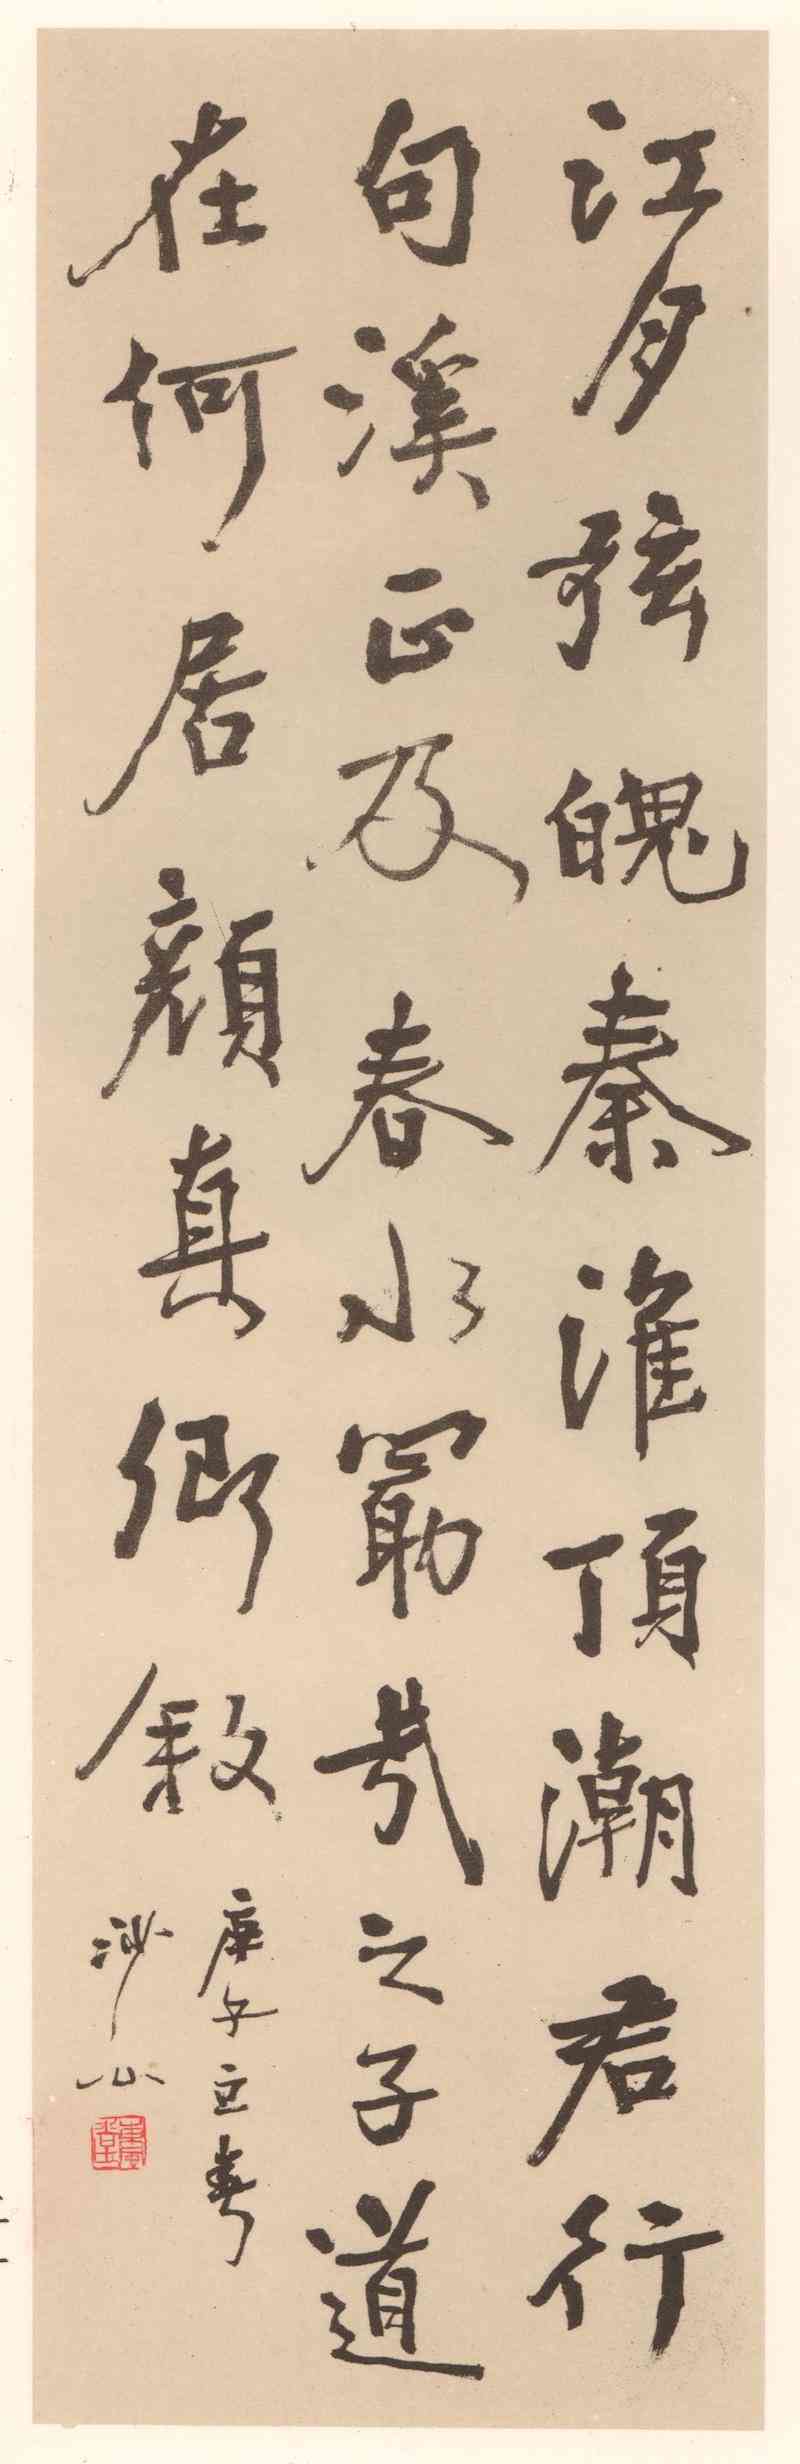 江月弦魄秦淮頂潮君行
句溪正及春水勗哉之子道
在何居顏真卿敘
庚午立春